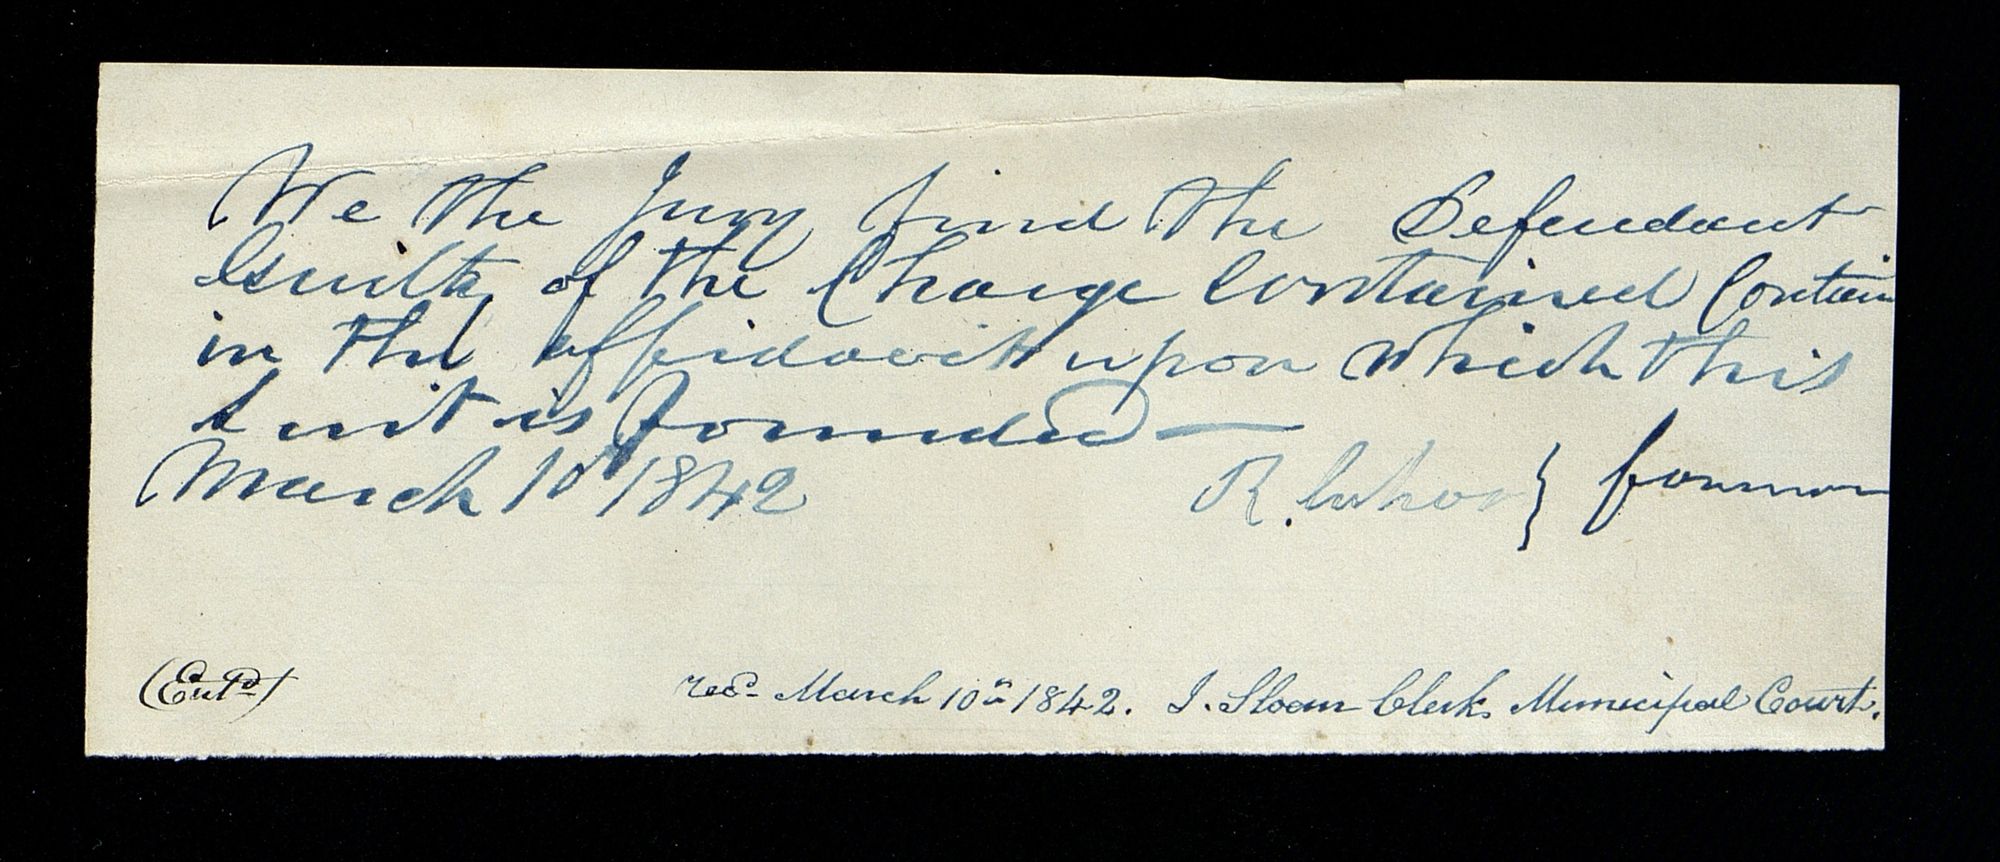 We the Jury find the Defendant
Guilty of the Charge Contained Contain
in the affidavit upon which this
Suit is founded —
March 10th 1842 R. } forman
(Entd) recd March 10th 1842. J. Sloan Clerk Municipal Court.